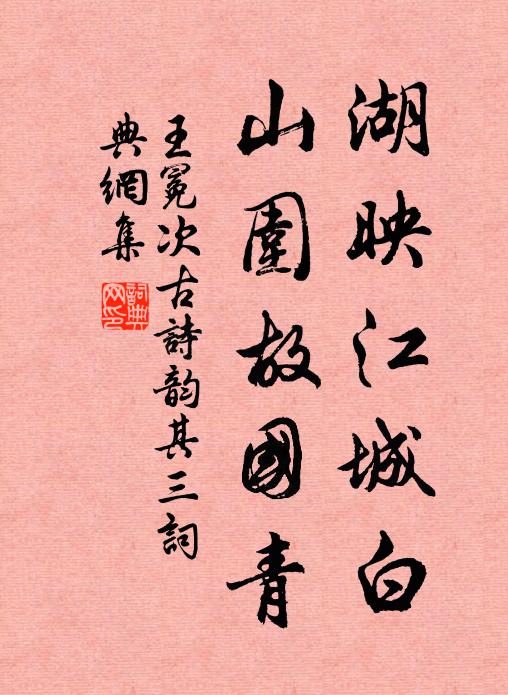 湖映江城白
山圍故國青
王冕次古詩韵其三詞
典網集
詞典网印